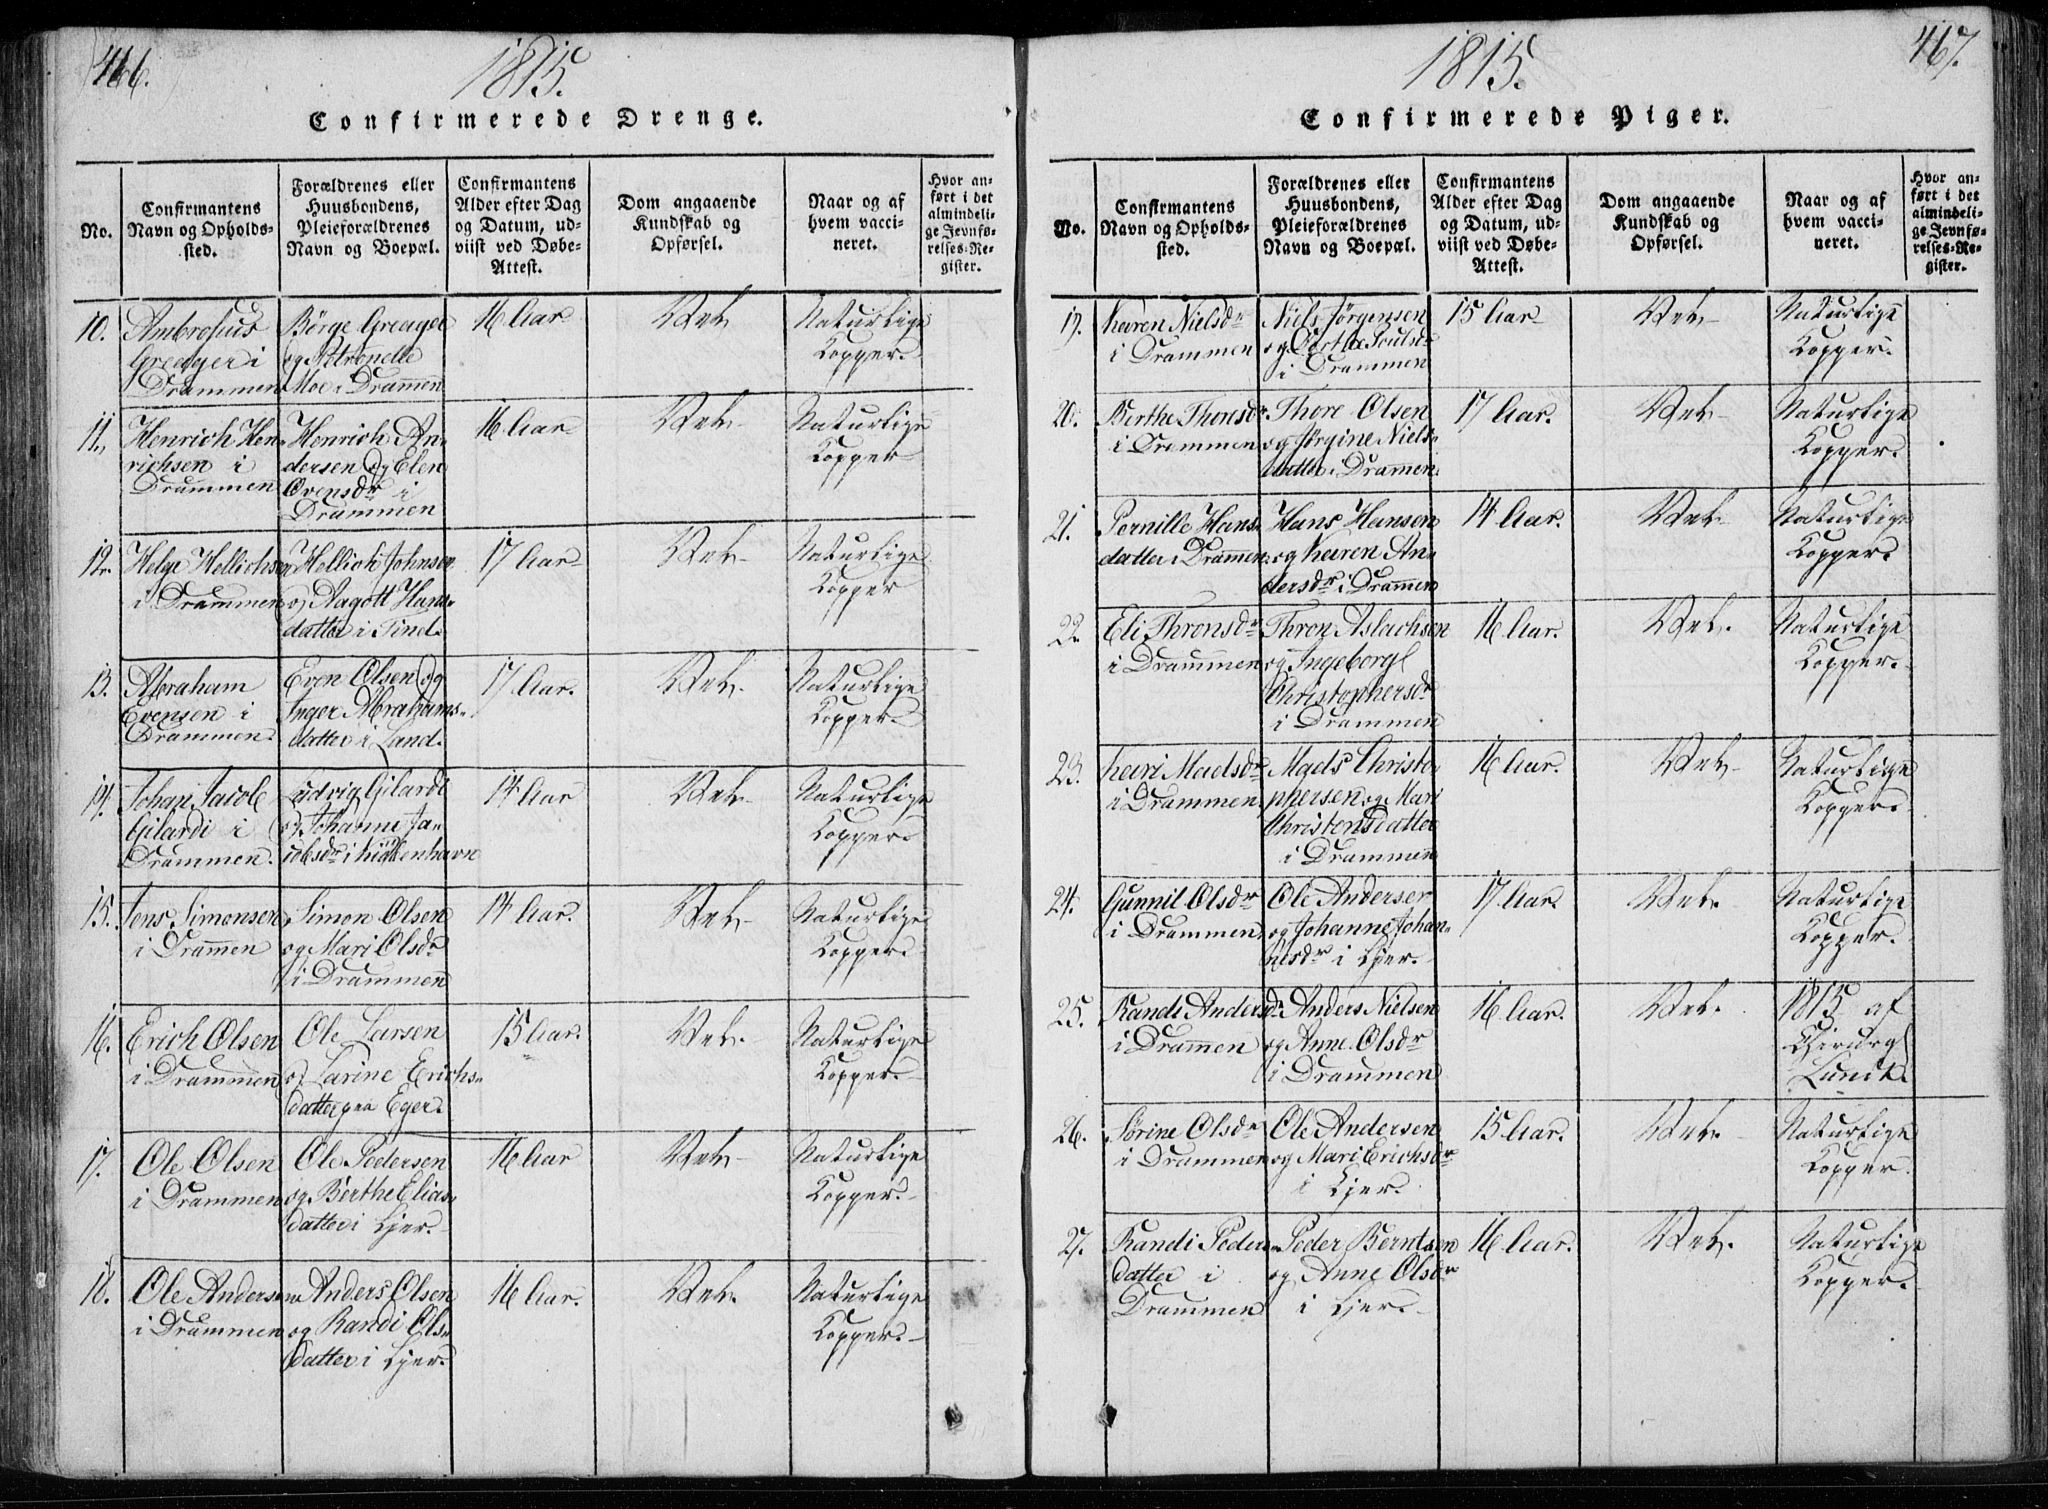 466.
1815.
Confirmerede Drenge.
No.
Confirmantens
Navn og Opholds-
sted.
Forældrenes eller
Huusbondens,
Pleieforældrenes
Navn og Boepæl.
Confirmantens
Alder efter Dag
og Datum, ud-
viist ved Døbe-
Attest.
Dom angaaende
Kundskab og
Opførsel.
Naar og af
hvem vacci-
neret.
Hvor an-
ført i det
almindeli-
ge Jevnfø-
relses-Re-
gister.
10.
Ambrosius
Greager i
Drammen
Børge Greager
og Petronelle
Moe i Drammen
16 Aar
Vel
Naturlige
Kopper
11.
Henrich Hen-
richsen i
Drammen
Henrich An-
dersen og Elen
Ovensdr i
Drammen
16 Aar
Vel
Naturlige
Kopper
12.
Helge Hellichsen
i Drammen
Hellich Johnsen
og Aagott Hans-
datter i Tind
17 Aar
Vel
Naturlige
Kopper
13.
Abraham
Evensen i
Drammen
Even Olsen og
Inger Abrahams-
datter i Land
17 Aar.
Vel
Naturlige
Kopper
14.
Johan Jacob
Gilardi i
Drammen
Ludvig Gilardi
og Johanne Ja-
cobsdr i Kiöbenhavn
14 Aar
Vel
Naturlige
Kopper
15.
Jens Simonsen
i Drammen
Simon Olsen
og Mari Olsdr
i Drammen
14 Aar.
Vel
Naturlige
Kopper
16.
Erich Olsen
i Drammen
Ole Larsen
og Larine Erichs-
datter paa Eger.
15 Aar.
Vel
Naturlige
Kopper
17.
Ole Olsen
i Drammen
Ole Pedersen
og Berthe Elias-
datter i Lier
16 Aar
Vel
Naturlige
Kopper
18.
Ole Andersen
i Drammen
Anders Olsen
og Randi Ols-
datter i Lier
16 Aar.
Vel.
Naturlige
Kopper
467.
1815.
Confirmerede Piger.
No.
Confirmantens
Navn og Opholds-
sted.
Forældrenes eller
Huusbondens,
Pleieforældrenes
Navn og Boepæl.
Confirmantens
Alder efter Dag
og Datum, ud-
viist ved Døbe-
Attest.
Dom angaaende
Kundskab og
Opførsel.
Naar og af
hvem vacci-
neret.
Hvor an-
ført i det
almindeli-
ge Jevnfø-
relses-Re-
gister.
19.
Karen Nielsdr
i Drammen
Niels Jørgensen
og Dorthe Poulsdr
i Drammen
15 Aar
Vel
Naturlige
Kopper
20.
Berthe Thorsdr
i Drammen
Thore Olsen
og Jørgine Niels-
datter i Drammen
17 Aar.
Vel
Naturlige
Kopper.
21.
Pernille Hans
datter i Drammen
Hans Hansen
og Karen An-
dersdr i Drammen
14 Aar.
Vel
Naturlige
Kopper.
22
Eli Thronsdr
i Drammen
Thron Aslachsen
og Ingeborg
Christophersdr
i Drammen
16 Aar.
Vel.
Naturlige
Kopper.
23.
Kari Madsdr
i Drammen
Mads Christo-
phersen og Mari
Christensdatter
i Drammen
16 Aar.
Vel
Naturlige
Kopper.
24.
Gunnil Olsdr
i Drammen
Ole Andersen
og Johanne Johan-
nesdr i Lier
17 Aar.
Vel.
Naturlige
Kopper.
25.
Randi Andersdr
i Drammen
Anders Nielsen
og Anne Olsdr
i Drammen
16 Aar.
Vel.
1815 af
Chirurg
Lundt.
26.
Sørine Olsdr
i Drammen
Ole Andersen
og Mari Erichsdr
i Lier.
15 Aar.
Vel.
Naturlige
Kopper.
27.
Randi Peders-
datter i
Drammen
Peder Berntsen
og Anne Olsdr
i Lier.
16 Aar.
Vel.
Naturlige
Kopper.